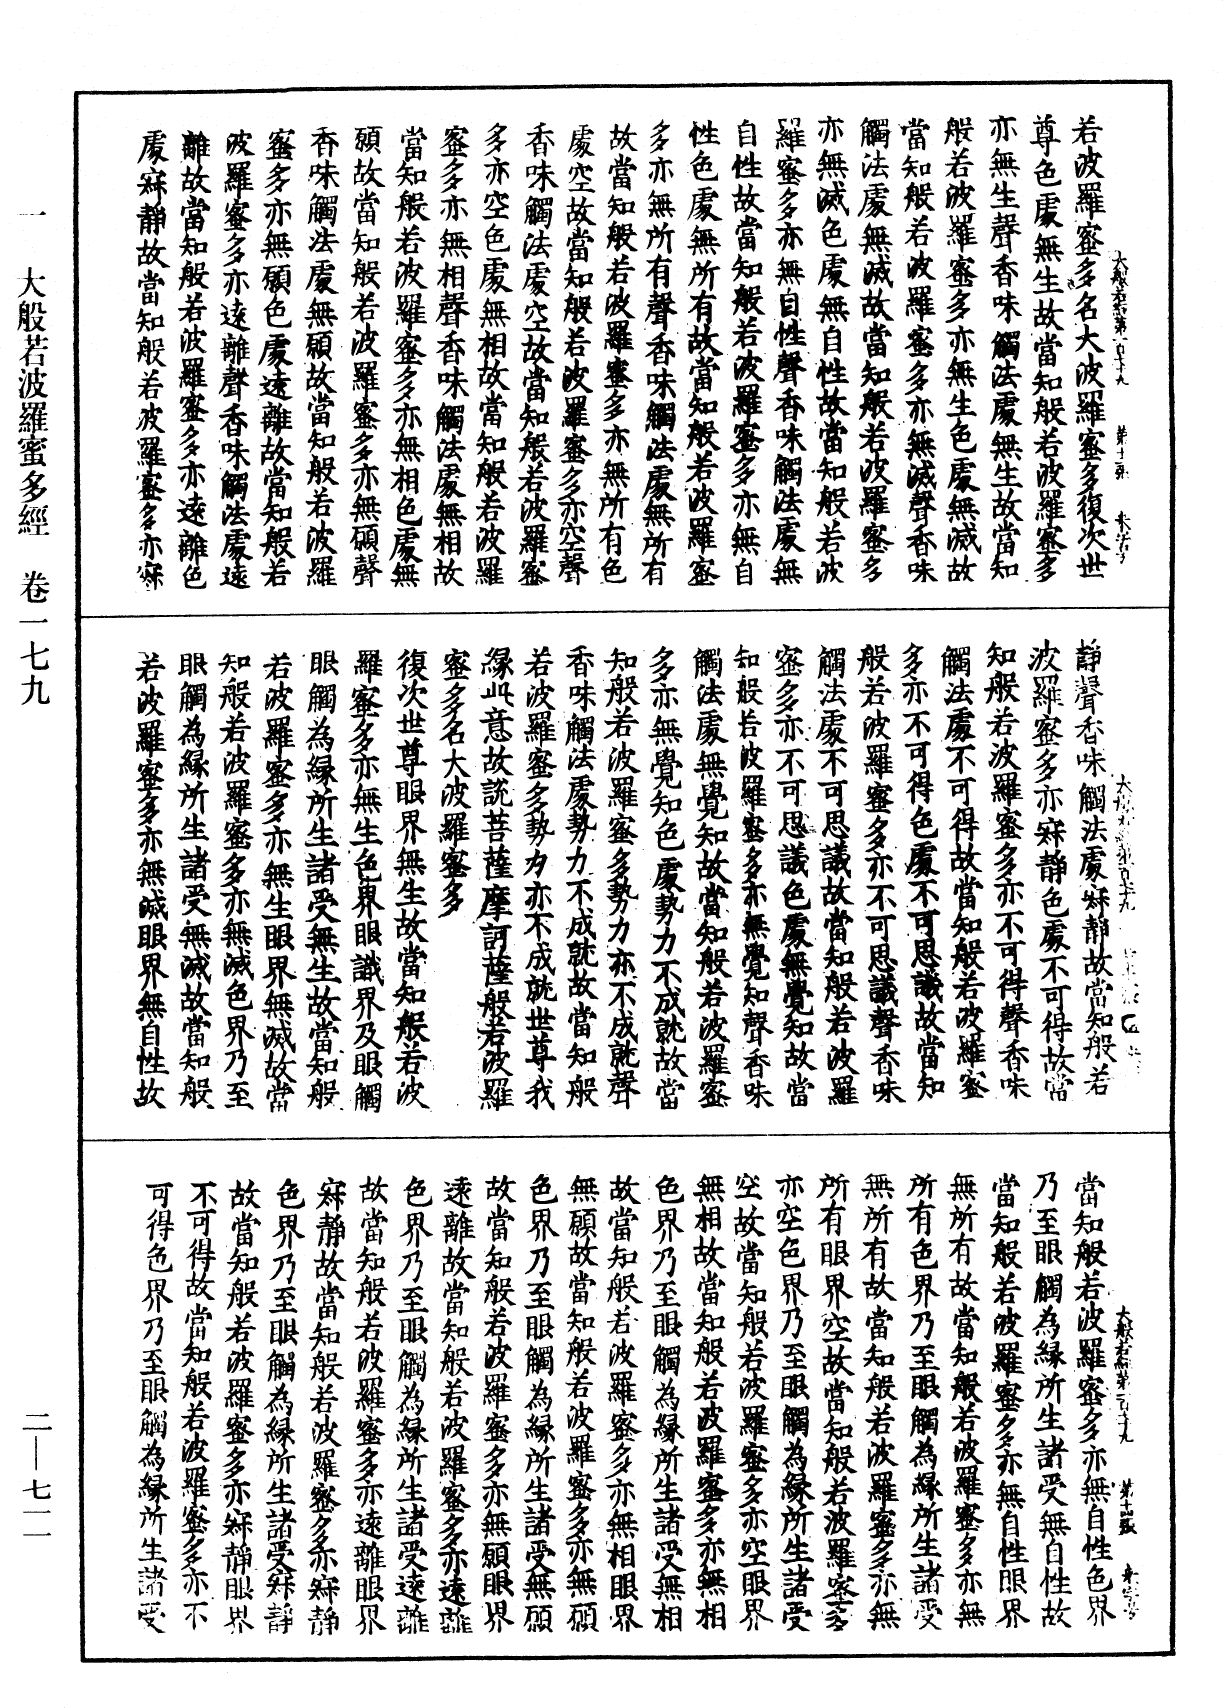 若波羅蜜多名大波羅蜜多復次世
尊色處無生故當知般若波羅蜜多
亦無生聲香味觸法處無生故當知
般若波羅蜜多亦無生色處無滅故
當知般若波羅蜜多亦無滅聲香味
觸法處無滅故當知般若波羅蜜多
亦無滅色處無自性故當知般若波
羅蜜多亦無自性聲香味觸法處無
自性故當知般若波羅蜜多亦無自
性色處無所有故當知般若波羅蜜
多亦無所有聲香味觸法處無所有
故當知般若波羅蜜多亦無所有色
處空故當知般若波羅蜜多亦空聲
香味觸法處空故當知般若波羅蜜
多亦空色處無相故當知般若波羅
蜜多亦無相聲香味觸法處無相故
當知般若波羅蜜多亦無相色處無
願故當知般若波羅蜜多亦無願聲
香味觸法處無願故當知般若波羅
蜜多亦無願色處遠離故當知般若
波羅蜜多亦遠離聲香味觸法處遠
離故當知般若波羅蜜多亦遠離色
處寂靜故當知般若波羅蜜多亦寂
靜聲香味觸法處寂靜故當知般若
波羅蜜多亦寂靜色處不可得故當
知般若波羅蜜多亦不可得聲香味
觸法處不可得故當知般若波羅蜜
多亦不可得色處不可思議故當知
般若波羅蜜多亦不可思議聲香味
觸法處不可思議故當知般若波羅
蜜多亦不可思議色處無覺知故當
知般若波羅蜜多亦無覺知聲香味
觸法處無覺知故當知般若波羅蜜
多亦無覺知色處勢力不成就故當
知般若波羅蜜多勢力亦不成就聲
香味觸法處勢力不成就故當知般
若波羅蜜多勢力亦不成就世尊我
緣此意故說菩薩摩訶薩般若波羅
蜜多名大波羅蜜多
復次世尊眼界無生故當知般若波
羅蜜多亦無生色界眼識界及眼觸
眼觸為緣所生諸受無生故當知般
若波羅蜜多亦無生眼界無滅故當
知般若波羅蜜多亦無滅色界乃至
眼觸為緣所生諸受無滅故當知般
若波羅蜜多亦無滅眼界無自性故
當知般若波羅蜜多亦無自性色界
乃至眼觸為緣所生諸受無自性故
當知般若波羅蜜多亦無自性眼界
無所有故當知般若波羅蜜多亦無
所有色界乃至眼觸為緣所生諸受
無所有故當知般若波羅蜜多亦無
所有眼界空故當知般若波羅蜜多
亦空色界乃至眼觸為緣所生諸受
空故當知般若波羅蜜多亦空眼界
無相故當知般若波羅蜜多亦無相
色界乃至眼觸為緣所生諸受無相
故當知般若波羅蜜多亦無相眼界
無願故當知般若波羅蜜多亦無願
色界乃至眼觸為緣所生諸受無願
故當知般若波羅蜜多亦無願眼界
遠離故當知般若波羅蜜多亦遠離
色界乃至眼觸為緣所生諸受遠離
故當知般若波羅蜜多亦遠離眼界
寂靜故當知般若波羅蜜多亦寂靜
色界乃至眼觸為緣所生諸受寂靜
故當知般若波羅蜜多亦寂靜眼界
不可得故當知般若波羅蜜多亦不
可得色界乃至眼觸為緣所生諸受
一 大般若波羅蜜多經 卷一七九
二—七一一